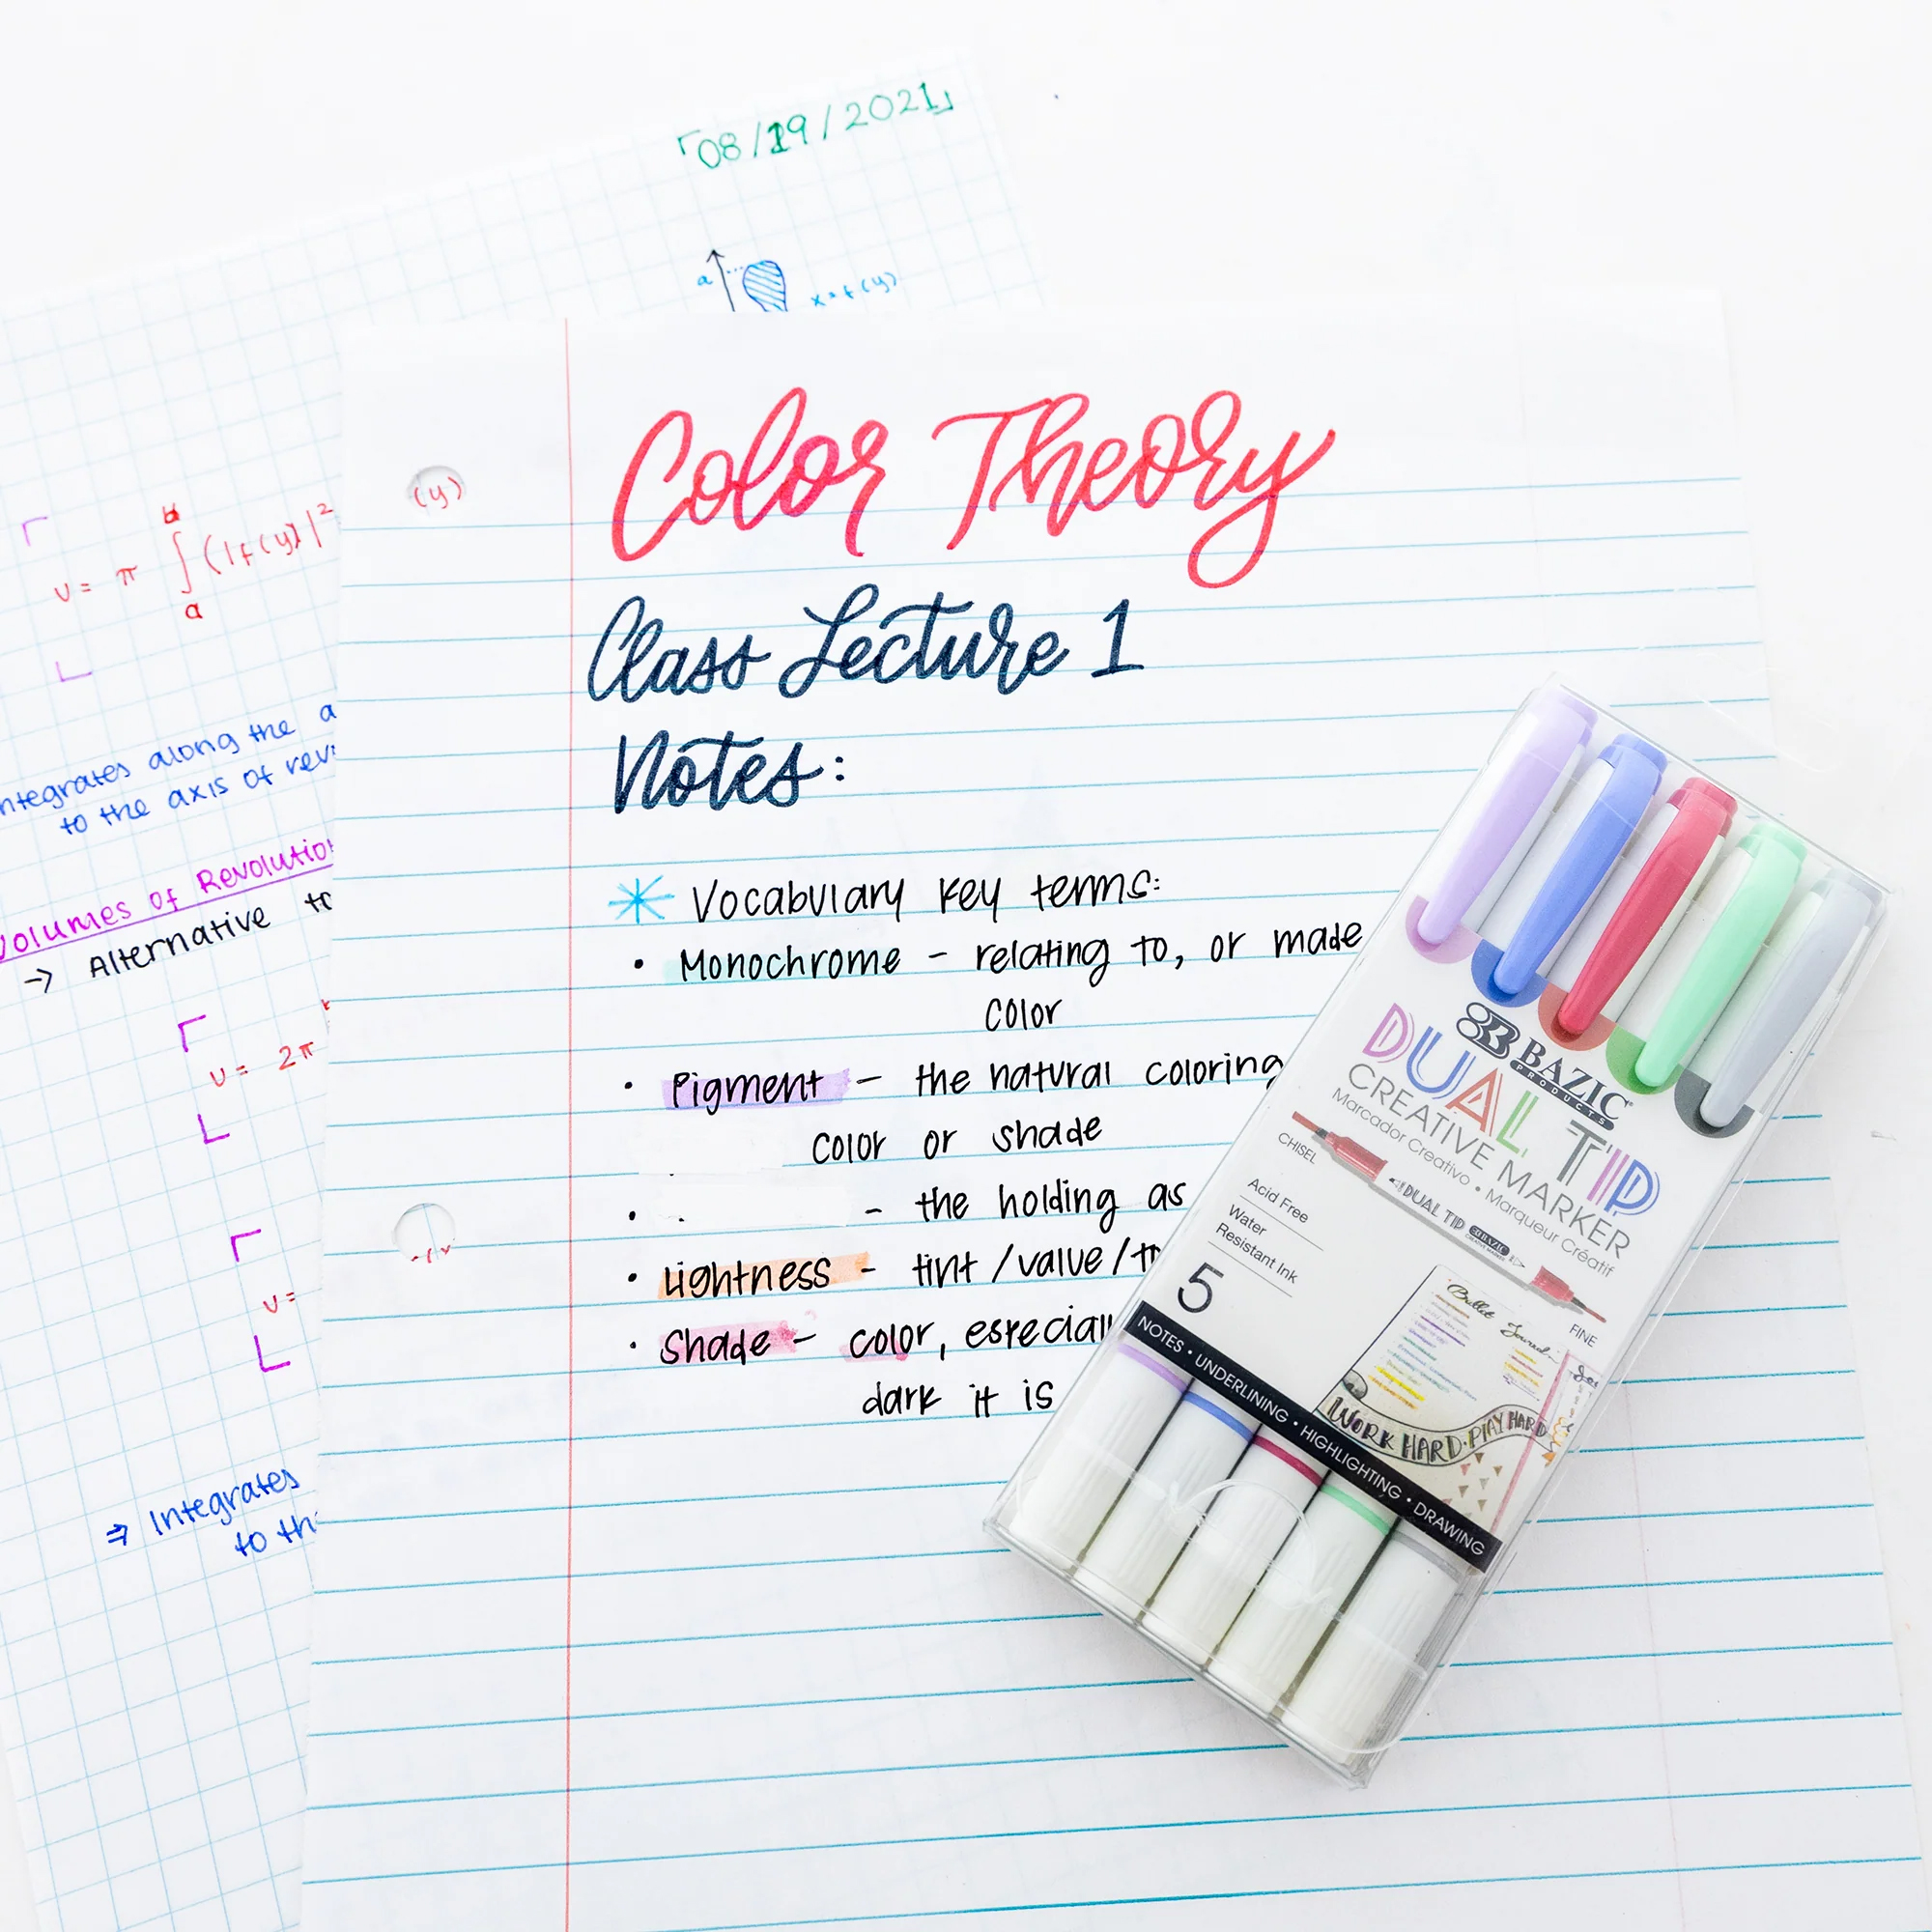 「08/19/2021」
a
x=f(y)
(y)
b
v = π ∫ (|f(y)|²
a
integrates along the a
to the axis of rev
Volumes of Revolution
→ Alternative to
v = 2π
v =
⇒ Integrates
to th
Color Theory
Class Lecture 1
Notes:
Vocabulary key terms:
• Monochrome - relating to, or made
color
• Pigment - the natural coloring
color or shade
• - the holding as
• Lightness - tint/value/
• Shade - color, especial
dark it is
BAZIC
PRODUCTS
DUAL TIP
CREATIVE MARKER
Marcador Creativo • Marqueur Créatif
CHISEL
DUAL TIP BAZIC
FINE
Acid Free
Water
Resistant Ink
5
Bullet Journal
WORK HARD·PLAY HARD
NOTES • UNDERLINING • HIGHLIGHTING • DRAWING